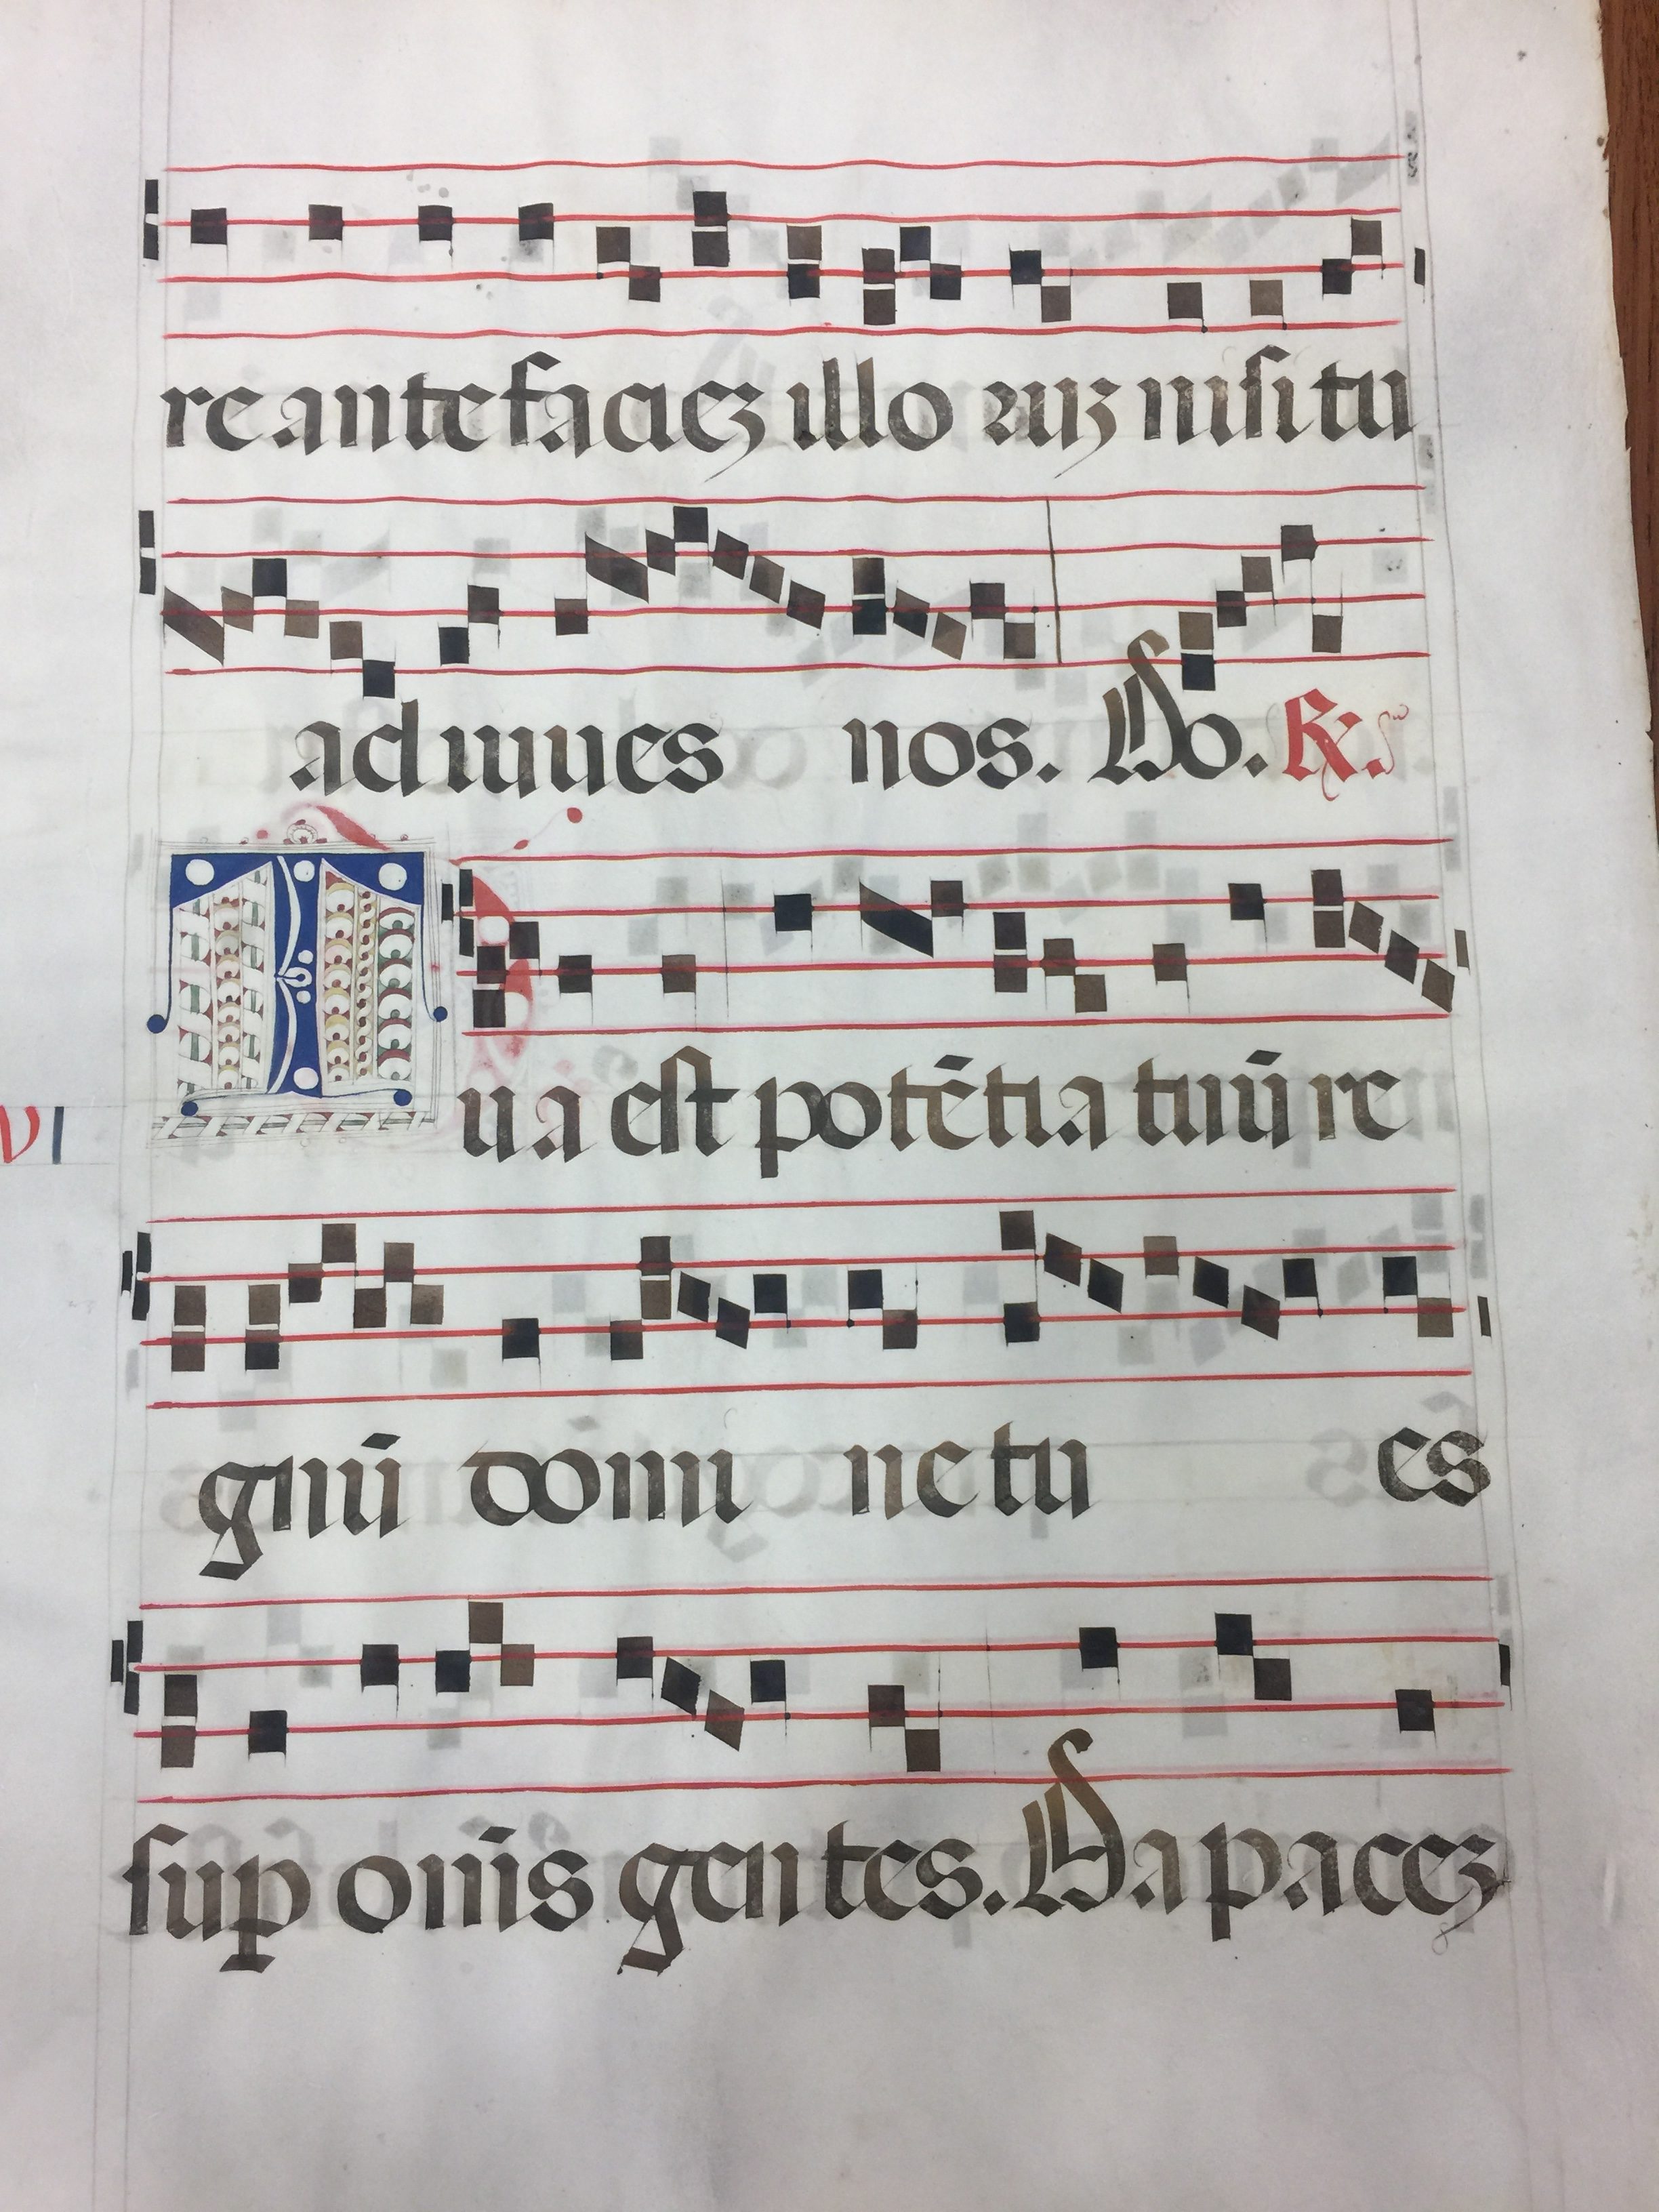 re ante facieꝫ illo ruꝫ nisi tu
adiuues nos. Do. ℟.
VI
Tua est potētia tuū re
gnū domi ne tu es
suꝑ om̄is gentes. Da paceꝫ